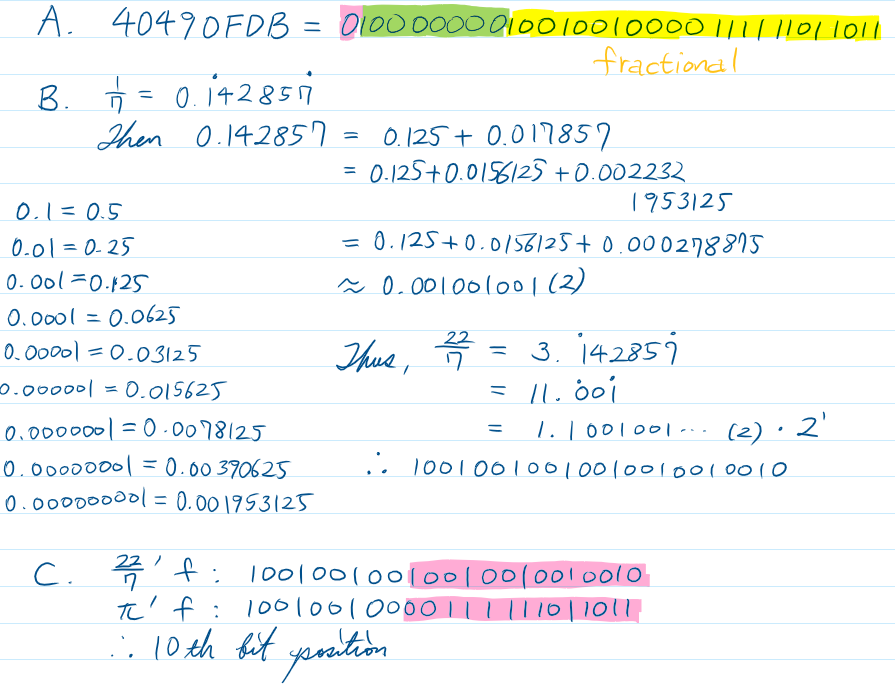 A. 40490FDB = 01000000010010010000111111011011
fractional
B. 1/7 = 0.1̇42857̇
Then 0.142857 = 0.125 + 0.017857
= 0.125+0.0156125+0.002232
1953125
= 0.125+0.0156125+0.000278875
≈ 0.001001001(2)
0.1 = 0.5
0.01 = 0.25
0.001 = 0.125
0.0001 = 0.0625
0.00001 = 0.03125
0.000001 = 0.015625
0.0000001 = 0.0078125
0.00000001 = 0.00390625
0.000000001 = 0.001953125
Thus, 22/7 = 3.1̇42857̇
= 11.0̇01̇
= 1.1001001... (2) · 2¹
∴ 10010010010010010010010
C. 22/7' f : 10010010010010010010010
π' f : 10010010000111111011011
∴ 10th bit position